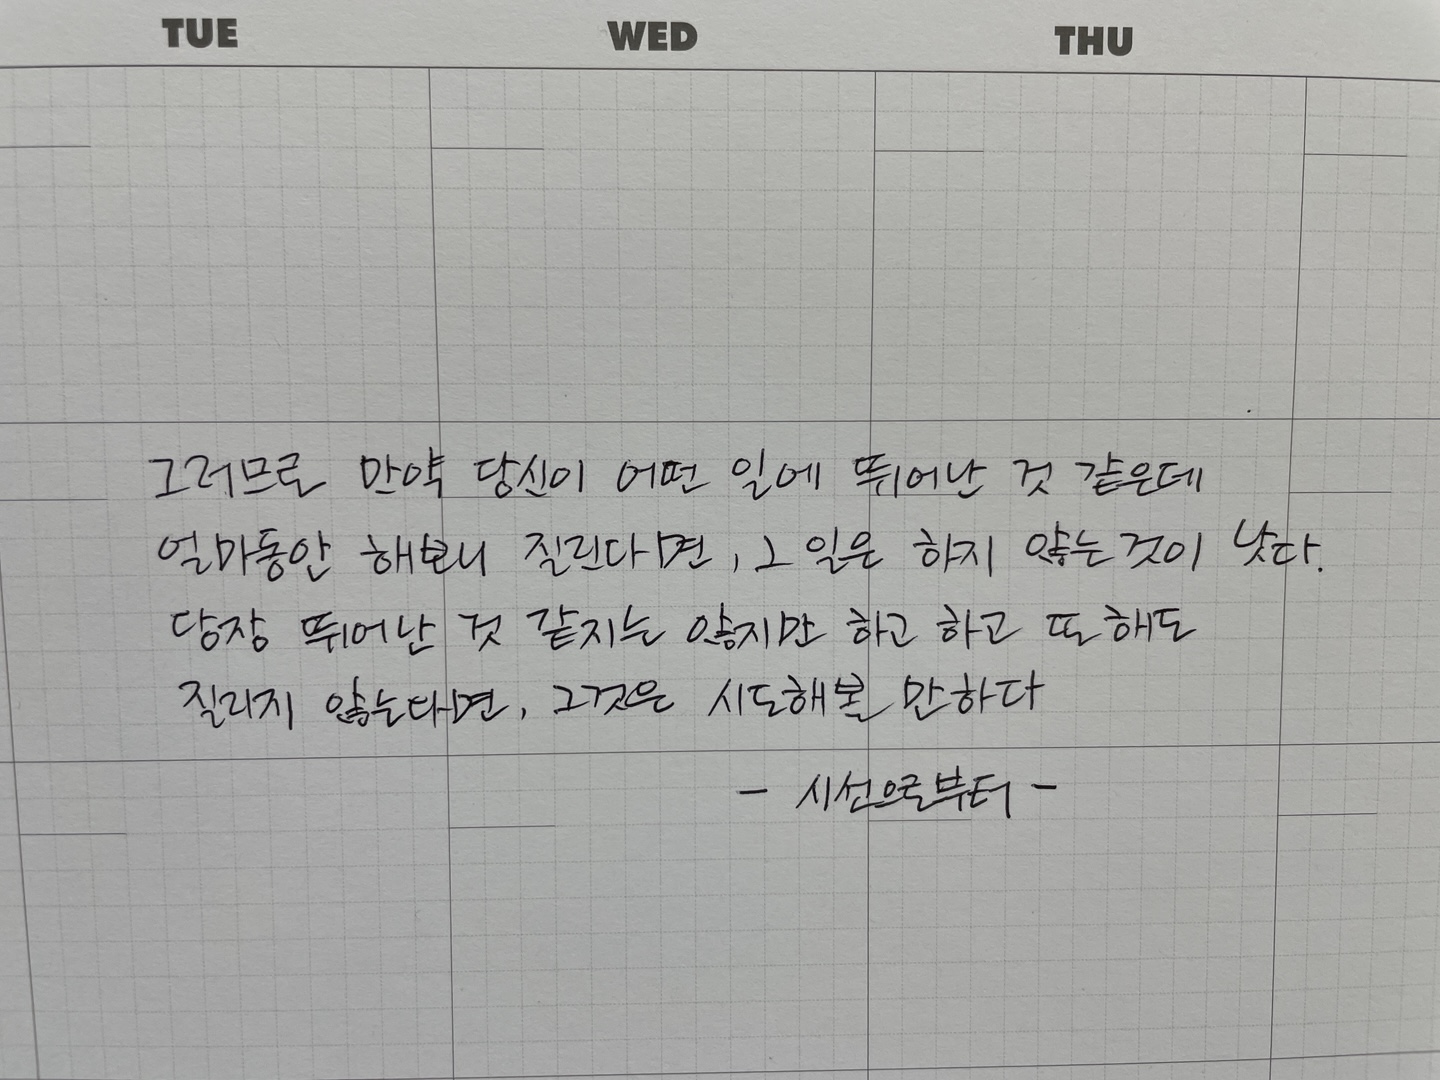 TUE WED THU
그러므로 만약 당신이 어떤 일에 뛰어난 것 같은데
얼마동안 해보니 질린다면, 그 일은 하지 않는것이 낫다.
당장 뛰어난 것 같지는 않지만 하고 하고 또 해도
질리지 않는다면, 그것은 시도해볼 만하다
- 시선으로부터 -